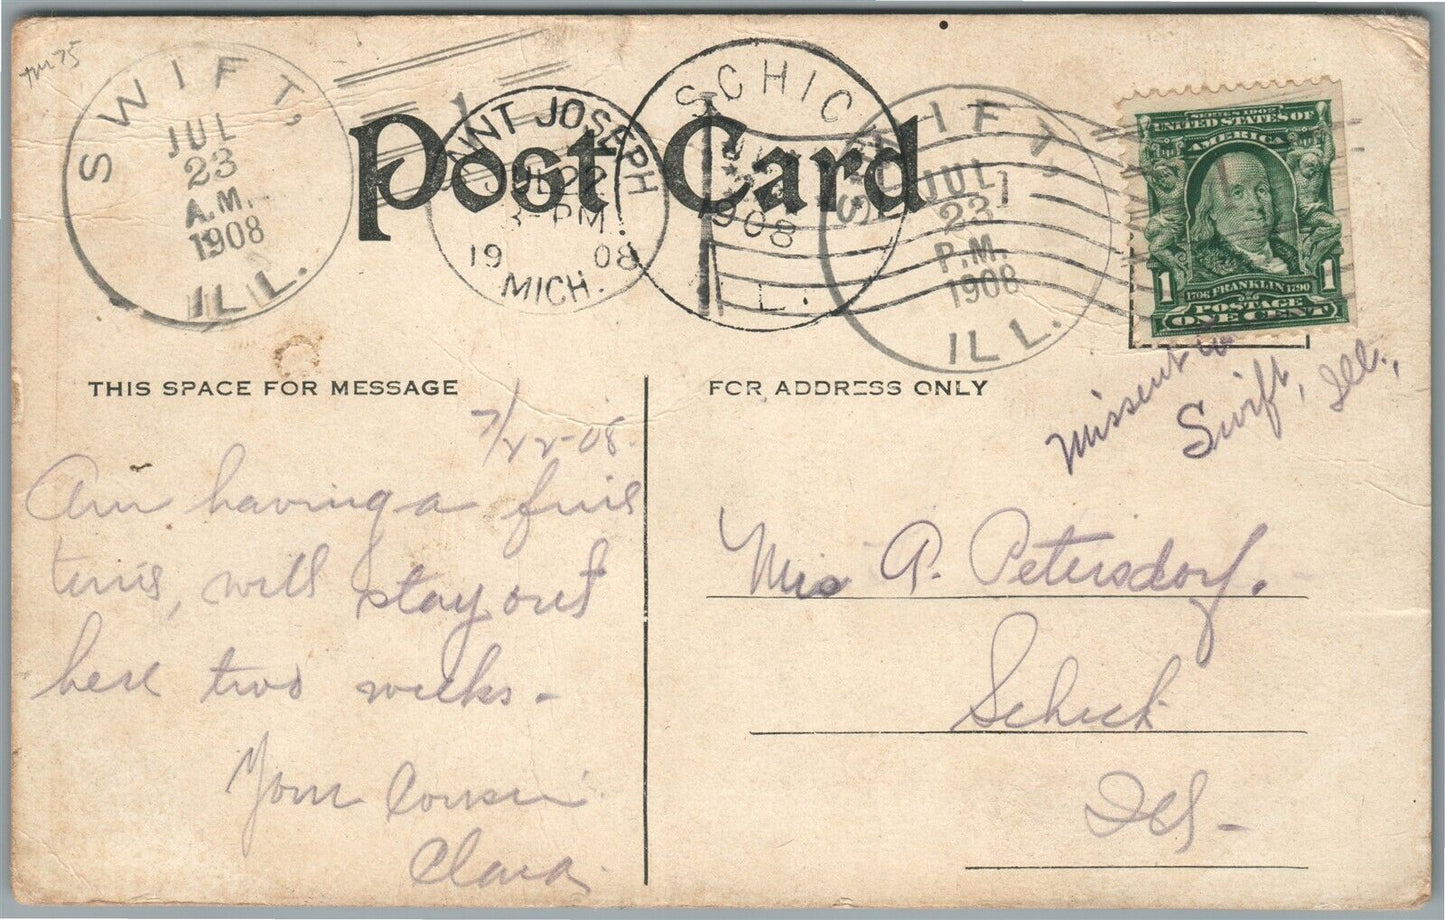 TM75
SWIFT,
JUL
23
A.M.
1908
ILL.
Post Card
SAINT JOSEPH
JUL 22
3-PM
19 08
MICH.
SCHICK
1908
ILL.
SWIFT,
JUL
23
P.M.
1908
ILL.
SERIES 1902
UNITED STATES OF
AMERICA
1 1
1706 FRANKLIN 1790
POSTAGE
ONE CENT
Missent to
Swift, Ill.,
THIS SPACE FOR MESSAGE
FOR ADDRESS ONLY
7/22-08.
Am having a fine
time, will stay out
here two weeks-
Your Cousin
Clara.
Mrs A. Petersdorf.
Schick
Ill-